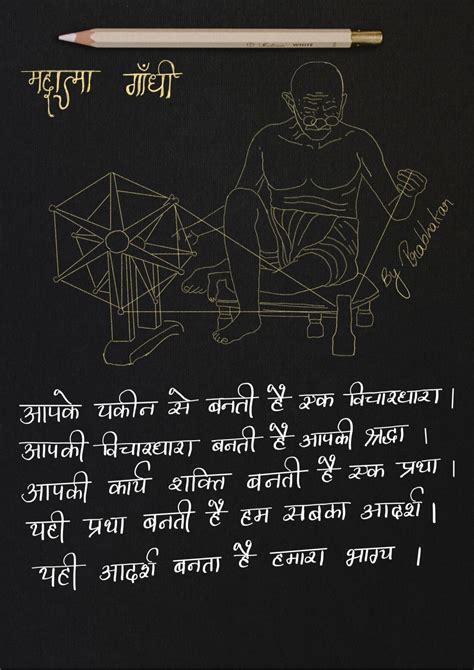 WHITE
महात्मा गाँधी
By Prabhakar
आपके यकीन से बनती है एक विचारधारा ।
आपकी विचारधारा बनती है आपकी श्रद्धा ।
आपकी कार्य शक्ति बनती है एक प्रथा ।
यही प्रथा बनती है हम सबका आदर्श ।
यही आदर्श बनता है हमारा भाग्य ।